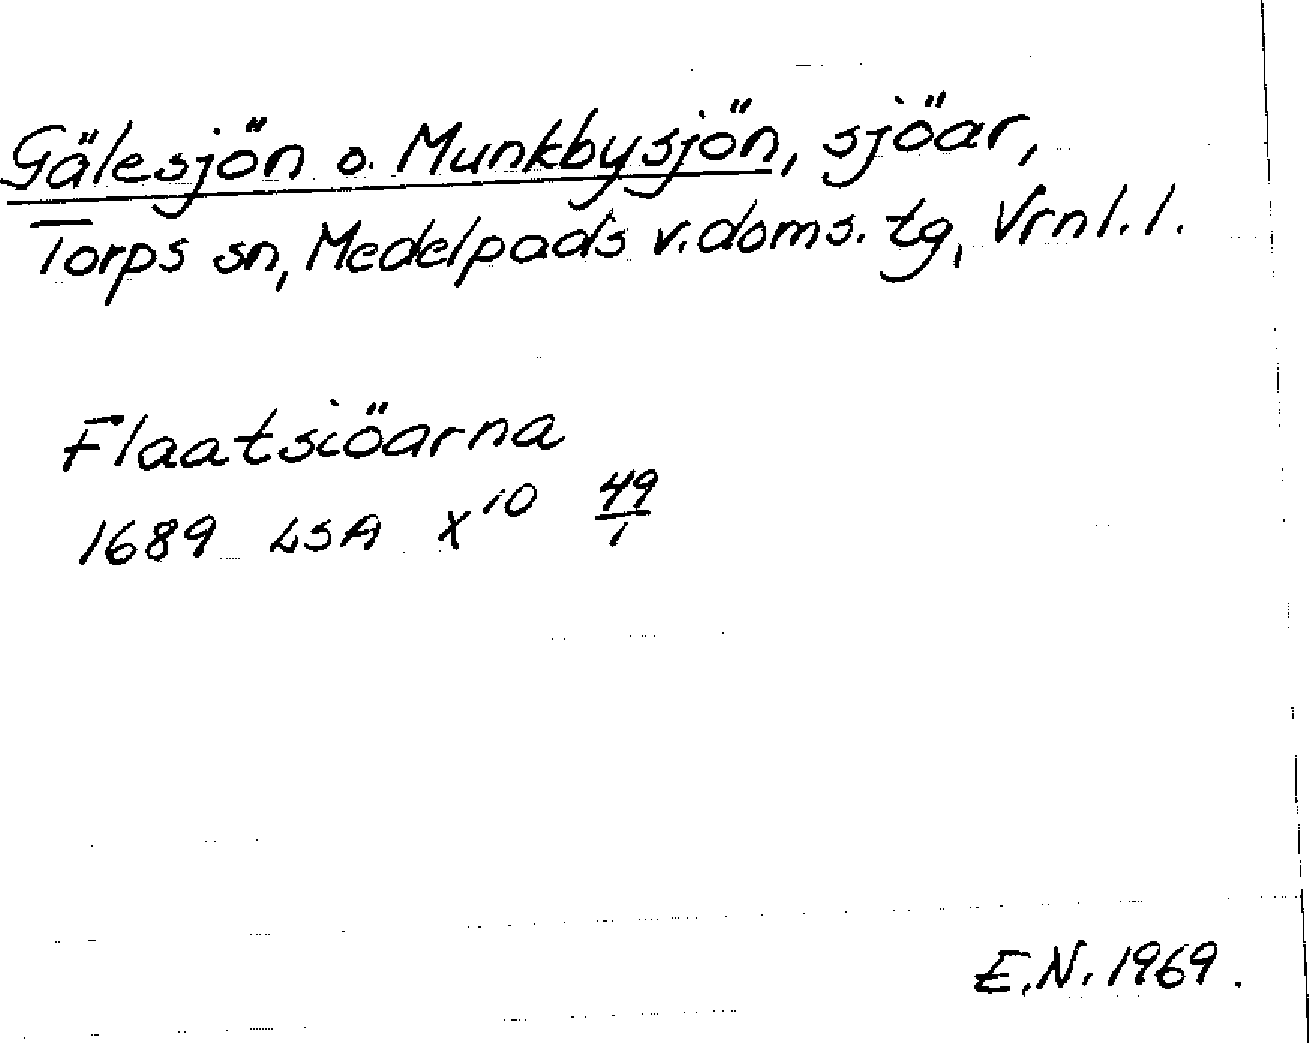 Gälesjön o. Munkbysjön, sjöar,
Torps sn, Medelpads v. doms. tg, Vrnl. l.
Flaatsiöarna
1689 LSA X¹⁰ 49/1
E.N. 1969.